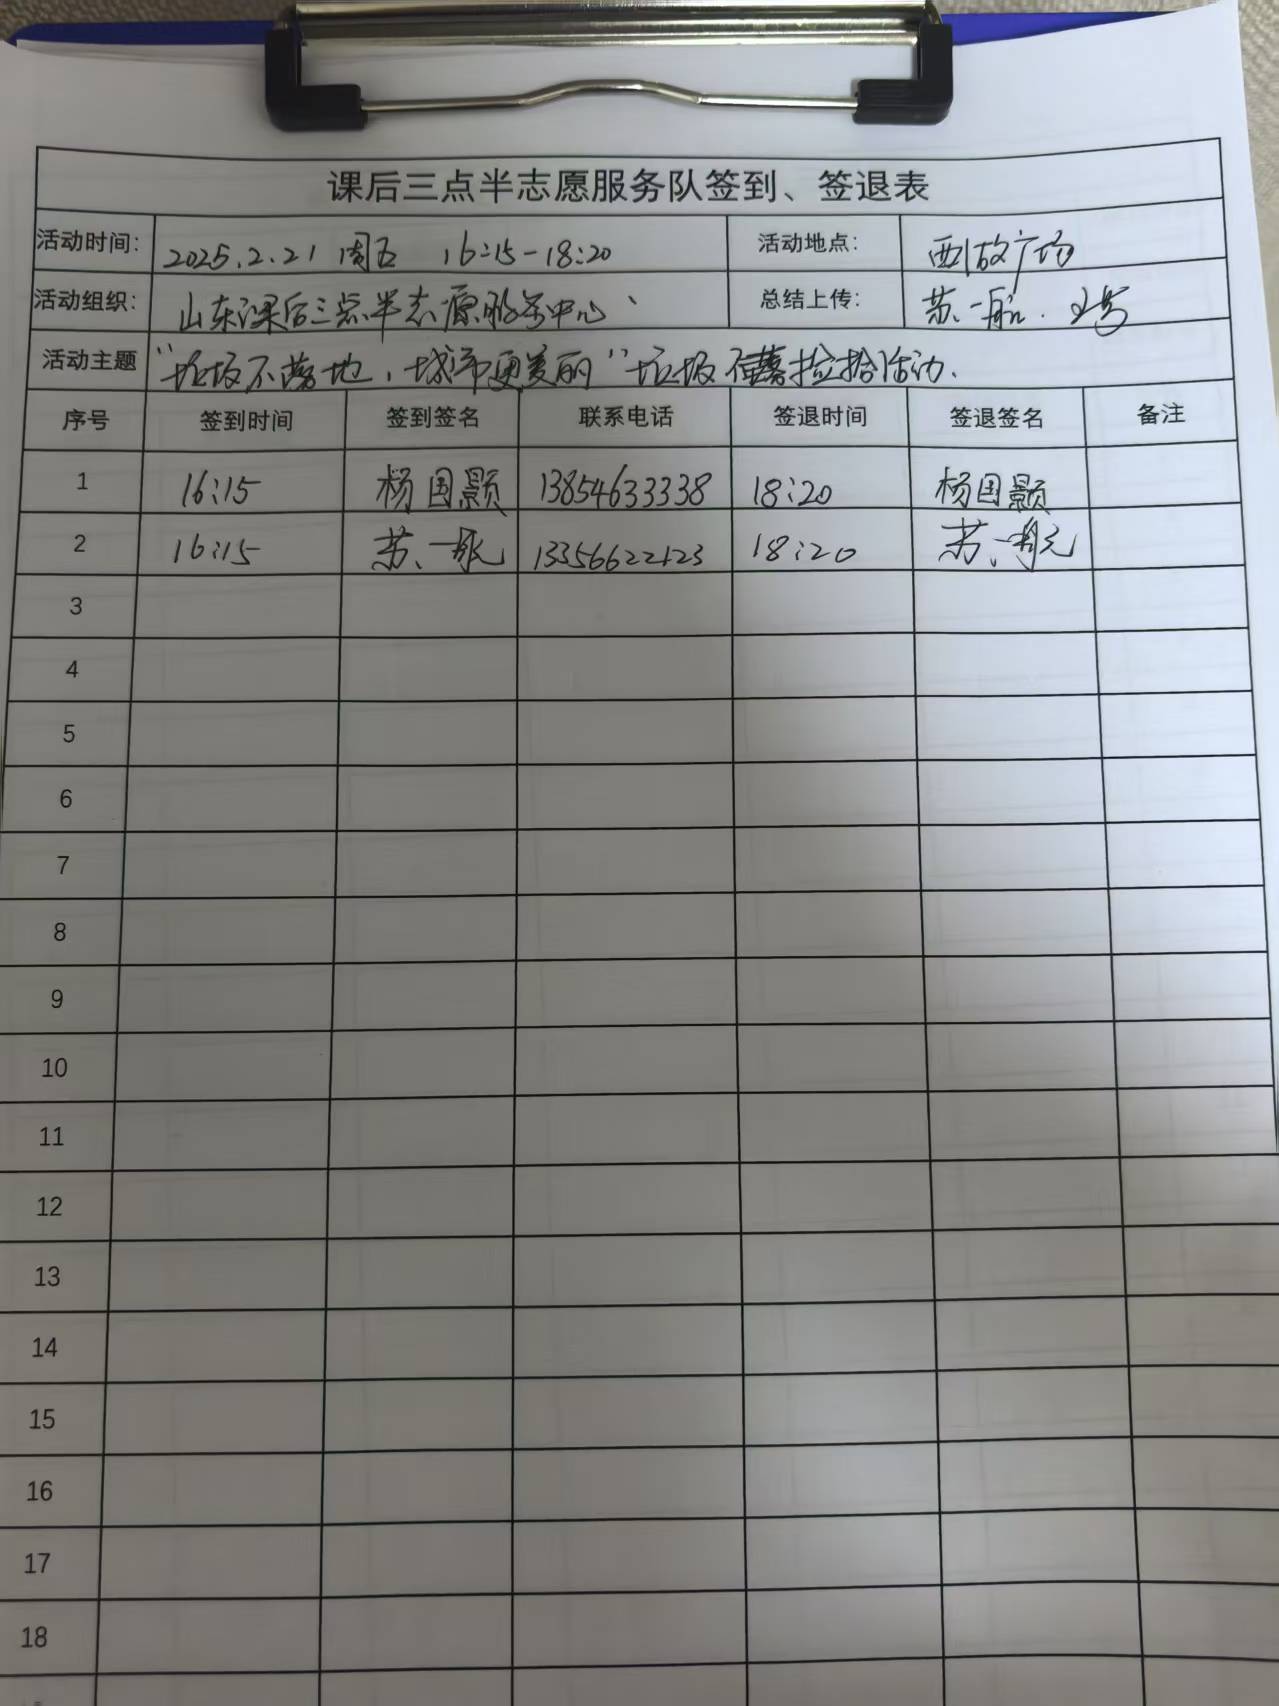 课后三点半志愿服务队签到、签退表
活动时间： 2025.2.21 周五 16:15-18:20 活动地点： 广场
活动组织： 山东课后三点半志愿服务中心 总结上传： 苏一航
活动主题 “垃圾不落地，城市更美丽”垃圾捡拾活动.
序号 签到时间 签到签名 联系电话 签退时间 签退签名 备注
1 16:15 杨国颢 13854633338 18:20 杨国颢
2 16:15 苏一航 13356622123 18:20 苏一航
3
4
5
6
7
8
9
10
11
12
13
14
15
16
17
18